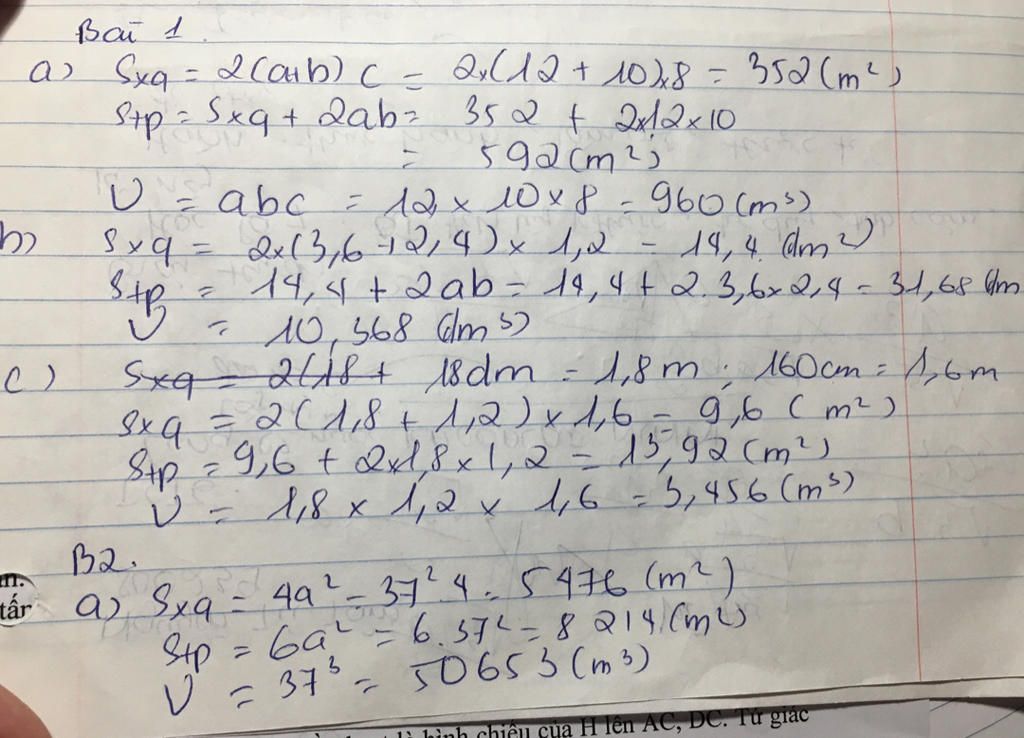 Bài 1.
a) Sxq = 2(a+b) c = 2x(12 + 10)x8 = 352 (m²)
Stp = Sxq + 2ab = 352 + 2x12x10
= 592 (m²)
V = abc = 12 x 10 x 8 = 960 (m³)
b) Sxq = 2x(3,6 + 2,4) x 1,2 = 14,4 (dm²)
Stp = 14,4 + 2ab = 14,4 + 2.3,6x2,4 = 31,68 (dm
V = 10,368 (dm³)
c) Sxq = 2(18 + 18dm = 1,8m ; 160cm = 1,6m
Sxq = 2(1,8 + 1,2) x 1,6 = 9,6 (m²)
Stp = 9,6 + 2x1,8x1,2 = 13,92 (m²)
V = 1,8 x 1,2 x 1,6 = 3,456 (m³)
B2.
a) Sxq = 4a² = 37² 4 = 5476 (m²)
Stp = 6a² = 6.37² = 8 214 (m²)
V = 37³ = 50653 (m³)
tấr
là hình chiếu của H lên AC, DC. Tứ giác